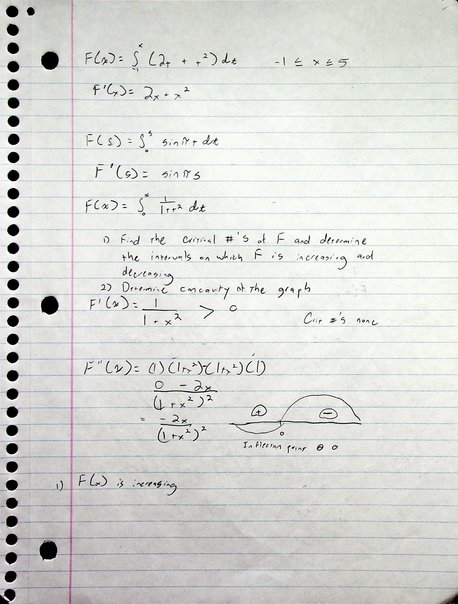 F(x) = ∫₋₁ˣ (2t + t²) dt    -1 ≤ x ≤ 5
F'(x) = 2x + x²
F(s) = ∫₀ˢ sin πt dt
F'(s) = sin πs
F(x) = ∫₀ˣ 1/(1+t²) dt
1) Find the critical #'s of F and determine
the intervals on which F is increasing and
decreasing
2) Determine concavity of the graph
F'(x) = 1/(1+x²) > 0
Crit #'s none
F''(x) = (1)'(1+x²) - (1+x²)'(1)
(0 - 2x)/(1+x²)²
= -2x/(1+x²)²
+ -
0
Inflection point @ 0
1) F(x) is increasing